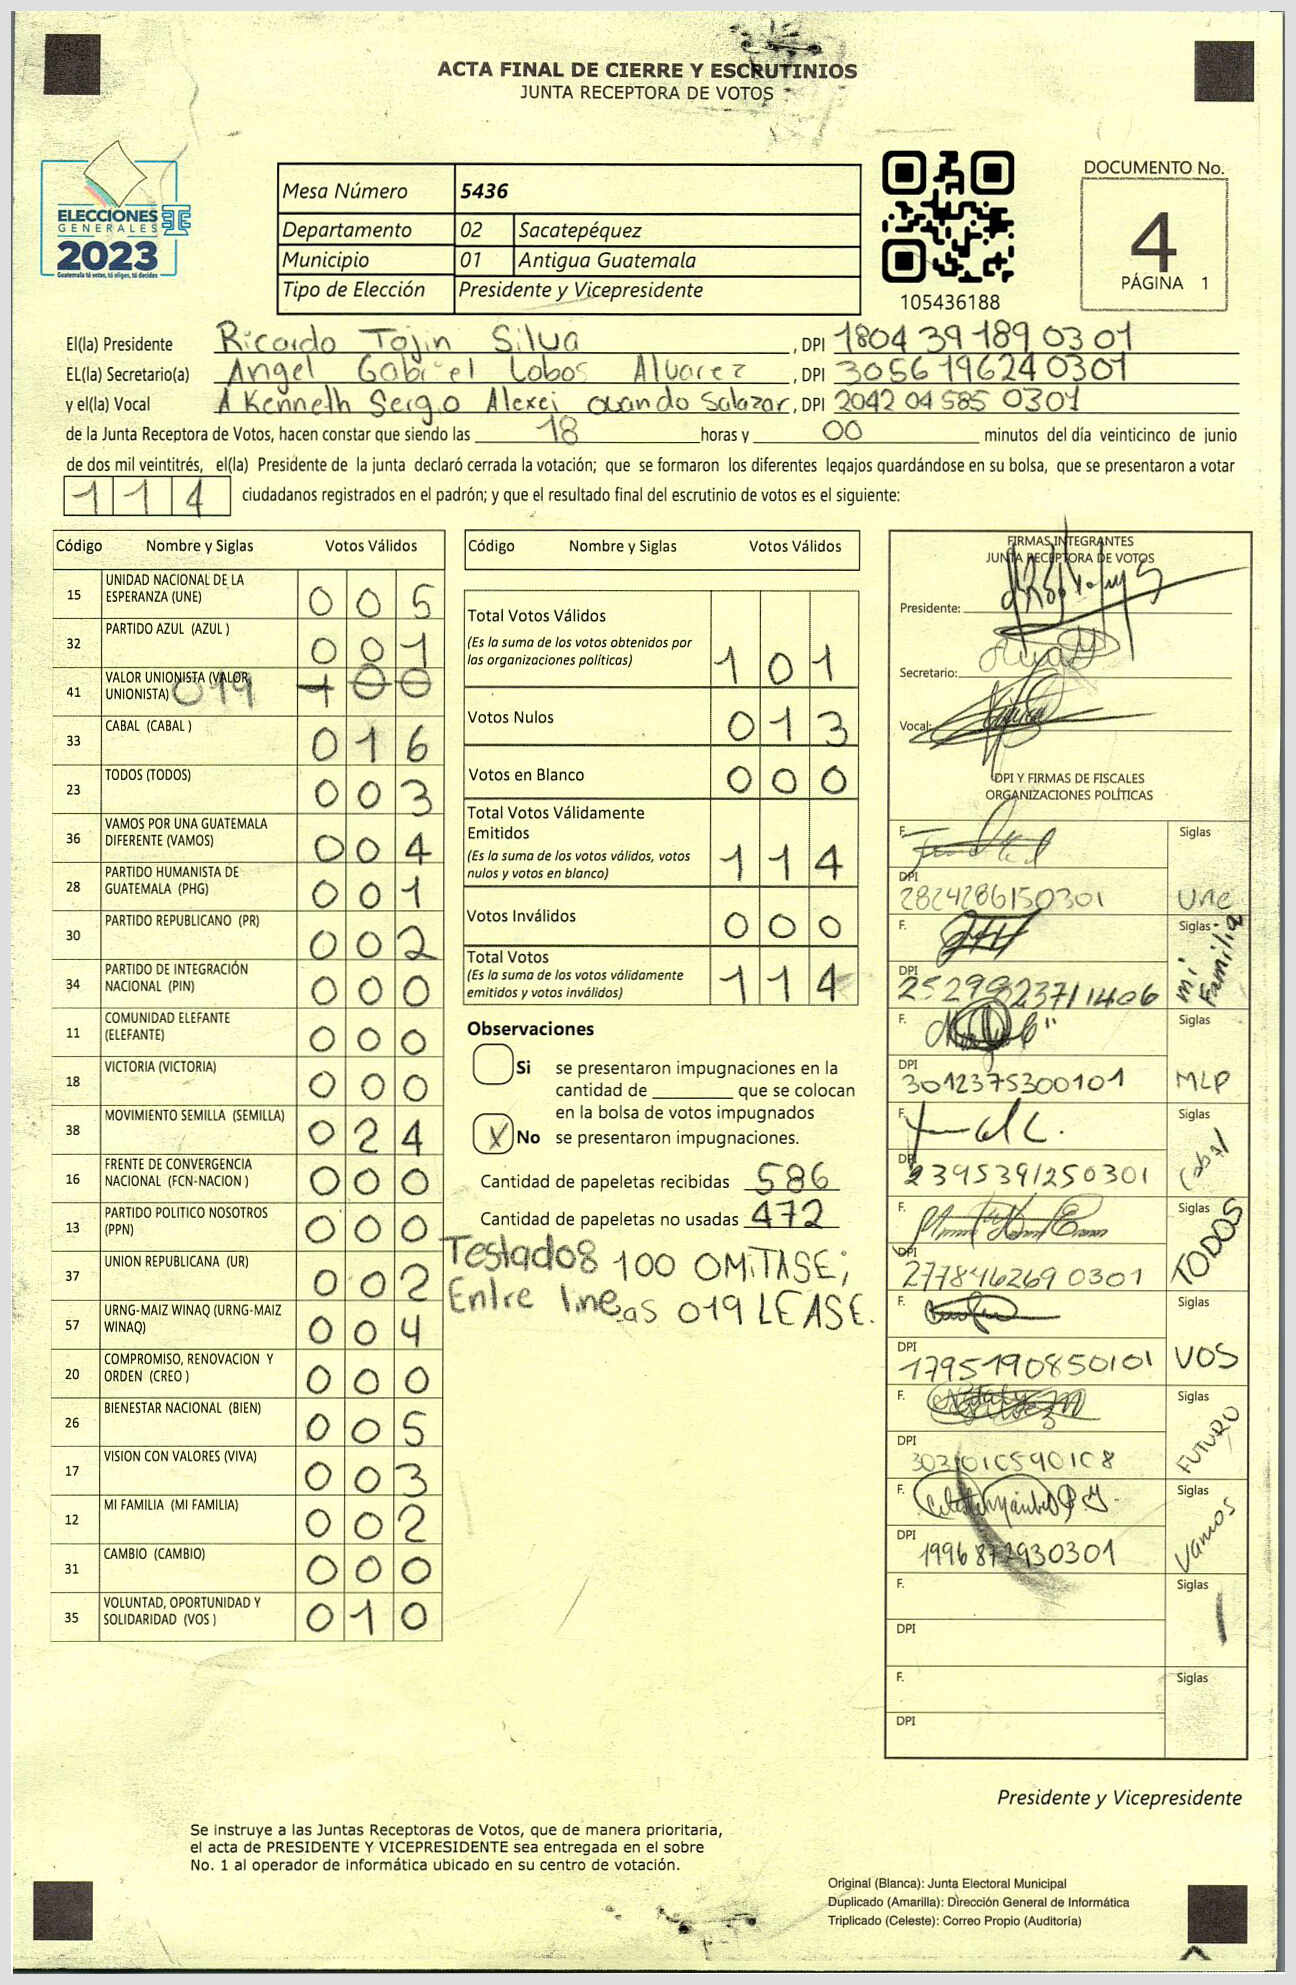 ACTA FINAL DE CIERRE Y ESCRUTINIOS
JUNTA RECEPTORA DE VOTOS
ELECCIONES
GENERALES
2023
Guatemala tú votas, tú eliges, tú decides
Mesa Número 5436
Departamento 02 Sacatepéquez
Municipio 01 Antigua Guatemala
Tipo de Elección Presidente y Vicepresidente
105436188
DOCUMENTO No.
4
PÁGINA 1
El(la) Presidente Ricardo Tojin Silva , DPI 1804 39 189 0301
EL(la) Secretario(a) Angel Gabriel Lobos Alvarez , DPI 3056196240301
y el(la) Vocal A Kenneth Sergio Alexei ovando Salazar, DPI 2042 04 585 0301
de la Junta Receptora de Votos, hacen constar que siendo las 18 horas y 00 minutos del día veinticinco de junio
de dos mil veintitrés, el(la) Presidente de la junta declaró cerrada la votación; que se formaron los diferentes legajos quardándose en su bolsa, que se presentaron a votar
114 ciudadanos registrados en el padrón; y que el resultado final del escrutinio de votos es el siguiente:
Código Nombre y Siglas Votos Válidos
15 UNIDAD NACIONAL DE LA ESPERANZA (UNE) 005
32 PARTIDO AZUL (AZUL ) 001
41 VALOR UNIONISTA (VALOR UNIONISTA) 019 100
33 CABAL (CABAL ) 016
23 TODOS (TODOS) 003
36 VAMOS POR UNA GUATEMALA DIFERENTE (VAMOS) 004
28 PARTIDO HUMANISTA DE GUATEMALA (PHG) 001
30 PARTIDO REPUBLICANO (PR) 002
34 PARTIDO DE INTEGRACIÓN NACIONAL (PIN) 000
11 COMUNIDAD ELEFANTE (ELEFANTE) 000
18 VICTORIA (VICTORIA) 000
38 MOVIMIENTO SEMILLA (SEMILLA) 024
16 FRENTE DE CONVERGENCIA NACIONAL (FCN-NACION ) 000
13 PARTIDO POLITICO NOSOTROS (PPN) 000
37 UNION REPUBLICANA (UR) 002
57 URNG-MAIZ WINAQ (URNG-MAIZ WINAQ) 004
20 COMPROMISO, RENOVACION Y ORDEN (CREO ) 000
26 BIENESTAR NACIONAL (BIEN) 005
17 VISION CON VALORES (VIVA) 003
12 MI FAMILIA (MI FAMILIA) 002
31 CAMBIO (CAMBIO) 000
35 VOLUNTAD, OPORTUNIDAD Y SOLIDARIDAD (VOS ) 010
Código Nombre y Siglas Votos Válidos
Total Votos Válidos
(Es la suma de los votos obtenidos por
las organizaciones políticas) 101
Votos Nulos 013
Votos en Blanco 000
Total Votos Válidamente
Emitidos
(Es la suma de los votos válidos, votos
nulos y votos en blanco) 114
Votos Inválidos 000
Total Votos
(Es la suma de los votos válidamente
emitidos y votos inválidos) 114
Observaciones
Si se presentaron impugnaciones en la
cantidad de ________ que se colocan
en la bolsa de votos impugnados
X No se presentaron impugnaciones.
Cantidad de papeletas recibidas 586
Cantidad de papeletas no usadas 472
Testados 100 OMITASE;
Entre lineas 019 LEASE.
FIRMAS INTEGRANTES
JUNTA RECEPTORA DE VOTOS
Presidente:
Secretario:
Vocal:
DPI Y FIRMAS DE FISCALES
ORGANIZACIONES POLÍTICAS
F. Siglas
DPI
2824286150301 Une
F. Siglas
DPI
2529823711406 mi Familia
F. Siglas
DPI
3012375300101 MLP
F. Siglas
DPI
2395391250301 Cabal
F. Siglas
DPI
2778462690301 TODOS
F. Siglas
DPI
1795190850101 VOS
F. Siglas
DPI
FUTURO
F. Siglas
DPI
Vamos
F. Siglas
DPI
F. Siglas
DPI
Presidente y Vicepresidente
Se instruye a las Juntas Receptoras de Votos, que de manera prioritaria,
el acta de PRESIDENTE Y VICEPRESIDENTE sea entregada en el sobre
No. 1 al operador de informática ubicado en su centro de votación.
Original (Blanca): Junta Electoral Municipal
Duplicado (Amarilla): Dirección General de Informática
Triplicado (Celeste): Correo Propio (Auditoría)